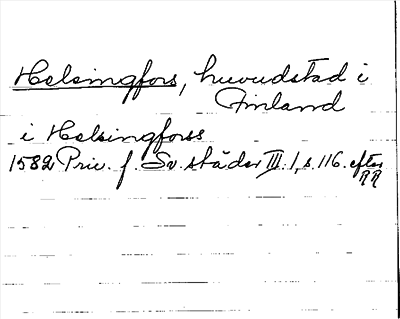 Helsingfors, huvudstad i
Finland
i Helsingforss
1582 Priv. f. Sv. städer III:1, s. 116. efter
RR